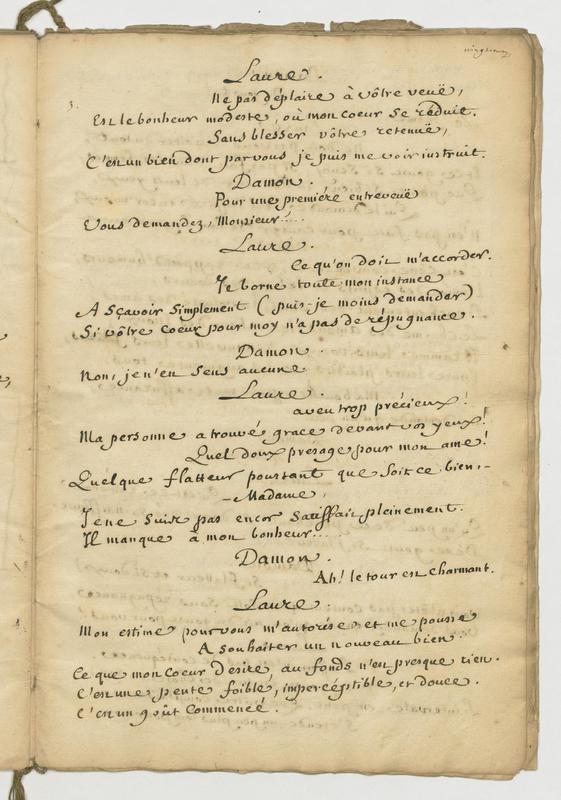 3.
Laure.
Ne pas déplaire à vôtre veuë,
Est le bonheur modeste, où mon coeur se réduit.
Sans blesser vôtre retenuë,
C'est un bien dont par vous je puis me voir instruit.
Damon.
Pour une premiére entreveuë
Vous demandez, Monsieur....
Laure.
Ce qu'on doit m'accorder.
Je borne toute mon instance
A Sçavoir Simplement (puis-je moins demander)
Si vôtre Coeur pour moy n'a pas de répugnance.
Damon.
Non, je n'en Sens aucune
Laure.
aveu trop précieux!
Ma personne a trouvé grace devant vos yeux!
Quel doux présage pour mon ame!
Quelque flatteur pourtant que soit ce bien,-
-Madame,
Je ne Suis pas encor Satisfait pleinement.
Il manque à mon bonheur...
Damon.
Ah! le tour est charmant.
Laure.
Mon estime pour vous m'autorise, et me pousse
A Souhaiter un nouveau bien
Ce que mon Coeur desire, au fonds n'est presque rien.
C'est une pente foible, impercéptible, et douce.
C'est un goût Commencé.